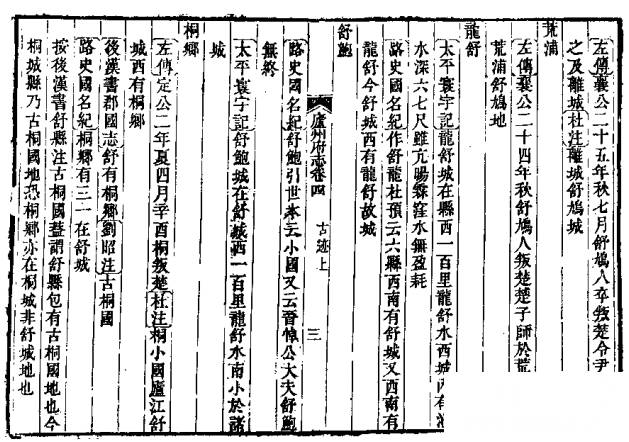 左傳襄公二十五年秋七月舒鳩人卒叛楚令尹
之及離城杜注離城舒鳩城
荒浦
左傳襄公二十四年秋舒鳩人叛楚楚子師於荒
荒浦舒鳩地
龍舒
太平寰宇記龍舒城在縣西一百里龍舒水西城內有
水深六七尺雖亢暘霖窪水無盈耗
路史國名紀作舒龍杜預云六縣西南有舒城又西南有
龍舒今舒城西有龍舒故城
舒鮑
廬州府志卷四 古迹上 三
路史國名紀舒鮑引世本云小國又云晉悼公大夫舒鮑
無終
太平寰宇記舒鮑城在舒城西一百里龍舒水南小於諸
城
桐鄉
左傳定公二年夏四月辛酉桐叛楚杜注桐小國廬江舒
城西有桐鄉
後漢書郡國志舒有桐鄉劉昭注古桐國
路史國名紀桐鄉有三一在舒城
按後漢書舒縣注古桐國蓋謂舒縣包有古桐國地也今
桐城縣乃古桐國地恐桐鄉亦在桐城非舒城地也